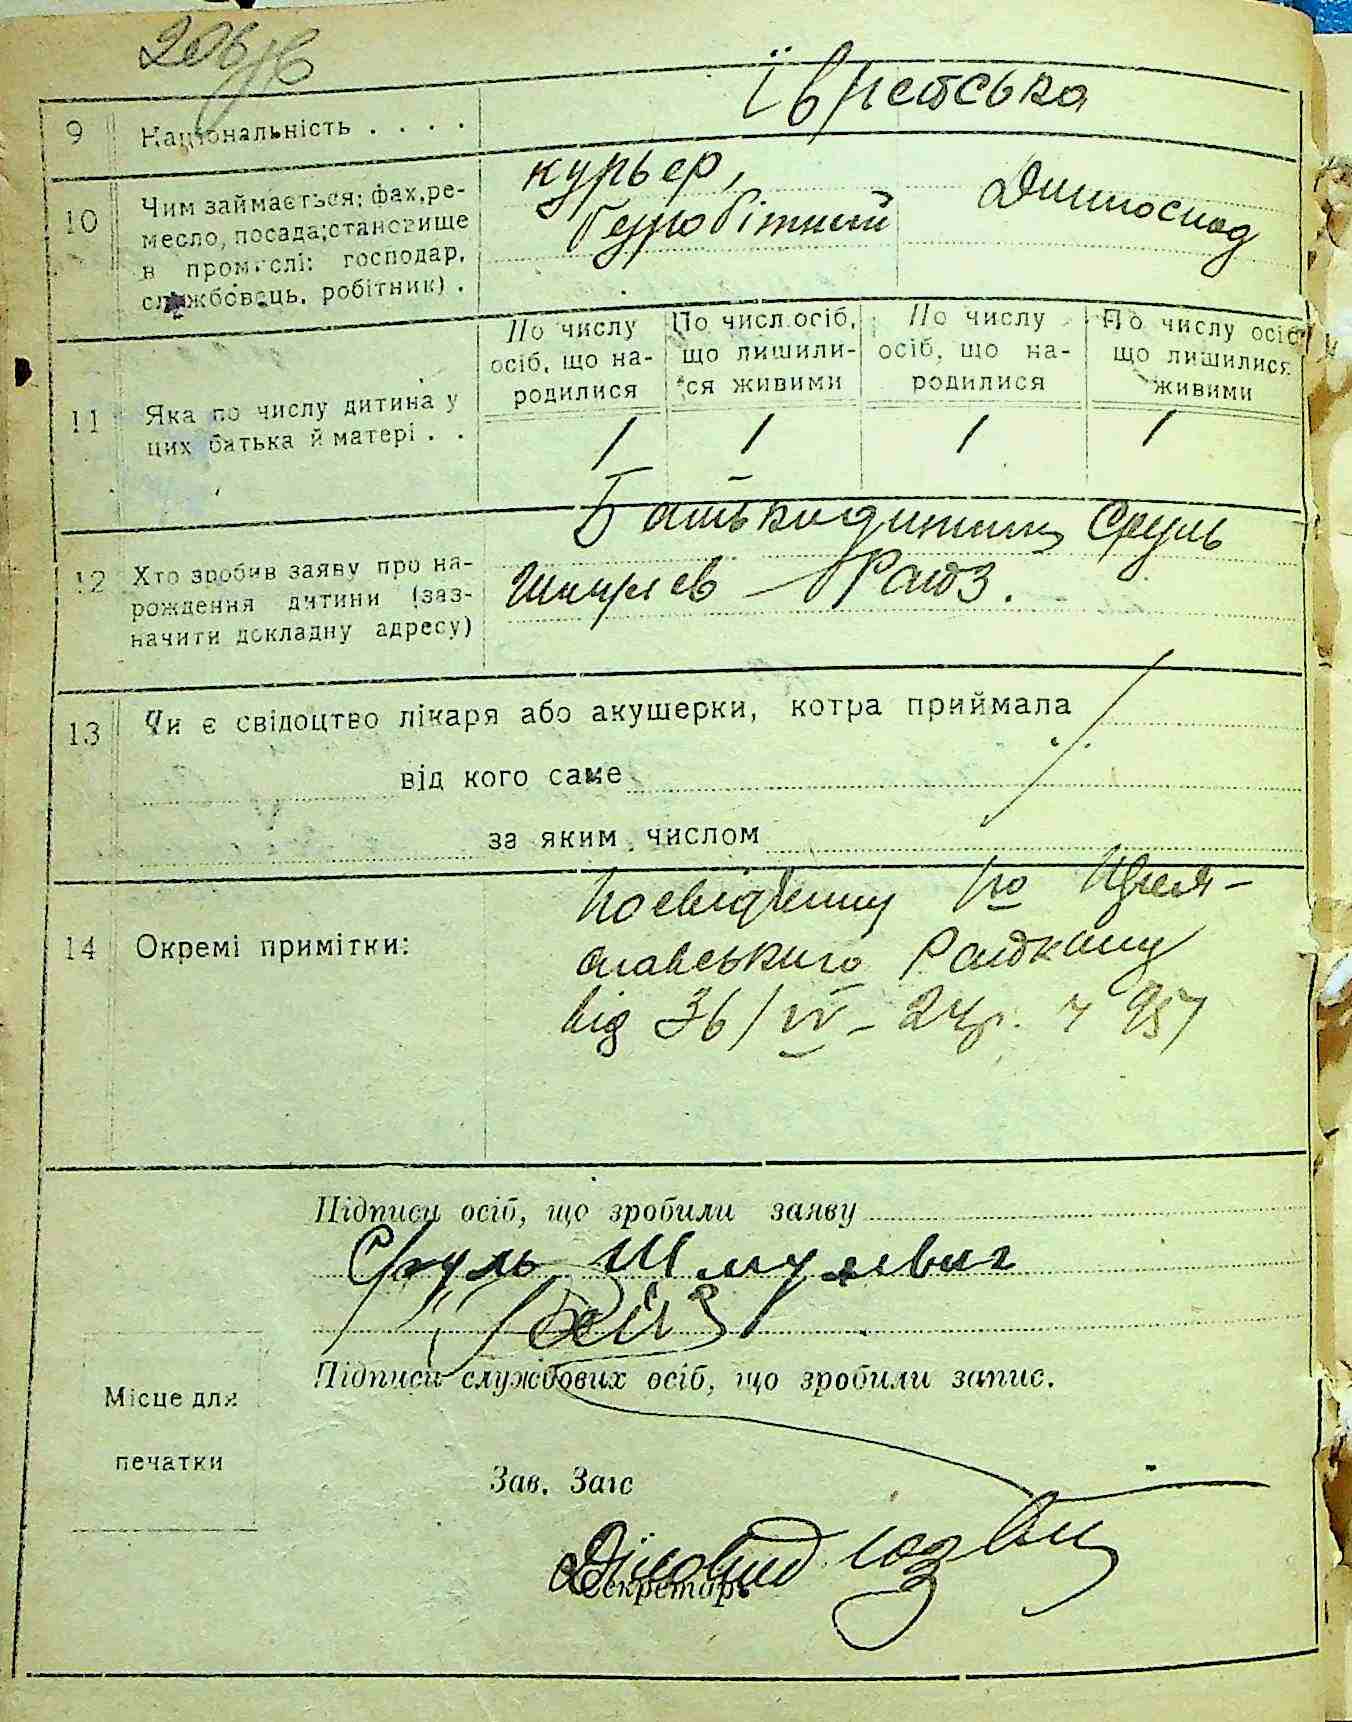 206
9 Національність . . . . Ївреєська
10 Чим займається: фах,ре-
месло, посада;становище
в промислі: господар,
службовець, робітник) .
курьер,
безробітний
Димосход
11 Яка по числу дитина у
цих батька й матері . .
По числу
осіб, що на-
родилися
По числ.осіб,
що лишили-
ся живими
По числу
осіб, що на-
родилися
По числу осіб
що лишилися
живими
1 1 1 1
12 Хто зробив заяву про на-
рождення дитини (заз-
начити докладну адресу)
Батько дитини Сруль
Шмулев Райз.
13 Чи є свідоцтво лікаря або акушерки, котра приймала
від кого саме
за яким числом
14 Окремі примітки:
по
від 36/IV - 24р. ч 957
Підписи осіб, що зробили заяву
Сруль Шмулевич
Райз
Підписи службових осіб, що зробили запис.
Місце для
печатки
Зав. Загс
Секретарь